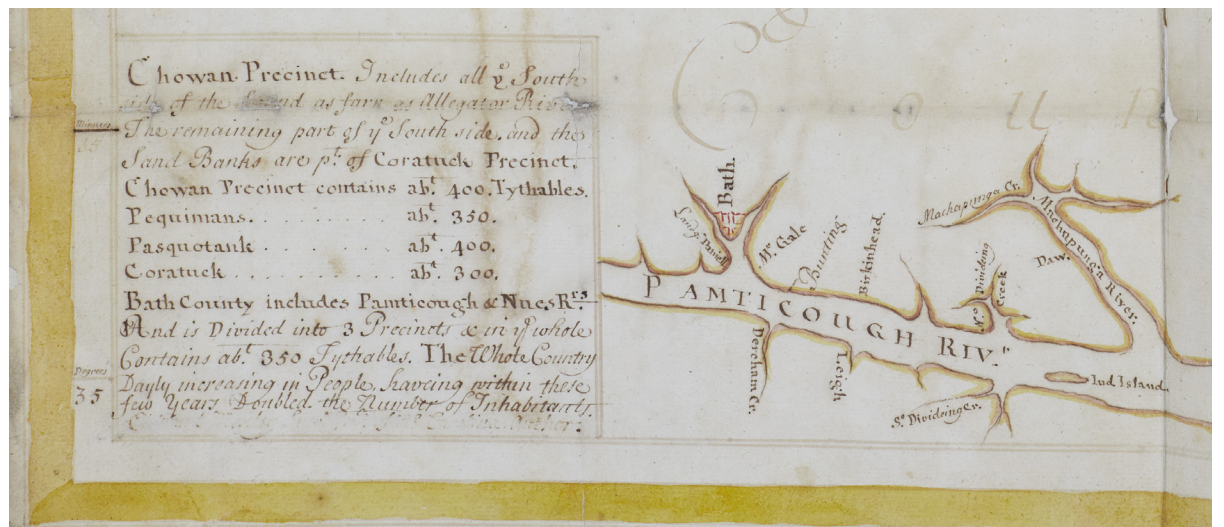 Chowan Precinct. Includes all yᵉ South
side of the Sound as farr as Allegator River
The remaining part of yᵉ South side, and the
Sand Banks are pᵗ of Coratuck Precinct.
Chowan Precinct contains abᵗ. 400. Tythables.
Pequimans. . . . . . . . . abᵗ. 350.
Pasquotank . . . . . . . abᵗ. 400.
Coratuck . . . . . . . . . . abᵗ. 300.
Bath County includes Pamticough & Nues Rʳˢ
And is Divided into 3 Precincts & in yᵉ whole
Contains abᵗ. 350 Tythables. The Whole Country
Dayly increasing in People, haveing within these
few Years Doubled the Number of Inhabitants.
Author.
Minnets
Degrees
35
C o u n
Bath.
Mʳ Gale
Bunting
Birkinhead.
Machapunga Cr.
Machapunga River.
Daw.
Nᵒ Dividing
Creek
PAMTICOUGH RIVʳ
Dereham Cr.
Leigh
Sᵒ Divideing Cr.
Ind. Island.